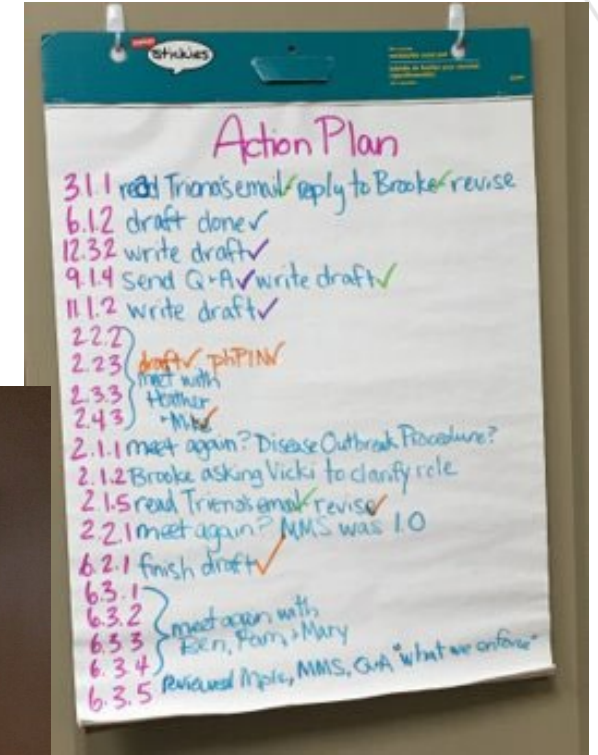 stickies
Action Plan
3.1.1 read Triena's email✓ reply to Brooke✓ revise
6.1.2 draft done✓
12.3.2 write draft✓
9.1.4 send Q+A✓ write draft✓
11.1.2 write draft✓
2.2.2
2.2.3 draft✓ phPIN✓
meet with
2.3.3 Heather
2.4.3
2.1.1 meet again? Disease Outbreak Procedure?
2.1.2 Brooke asking Vicki to clarify role
2.1.5 read Triena's email✓ revise✓
2.2.1 meet again? MMS was 1.0
6.2.1 finish draft✓
6.3.1
6.3.2 meet again with
6.3.3 Ben, Pam, + Mary
6.3.4
6.3.5 reviewed Mpls, MMS, Q+A "what we enforce"